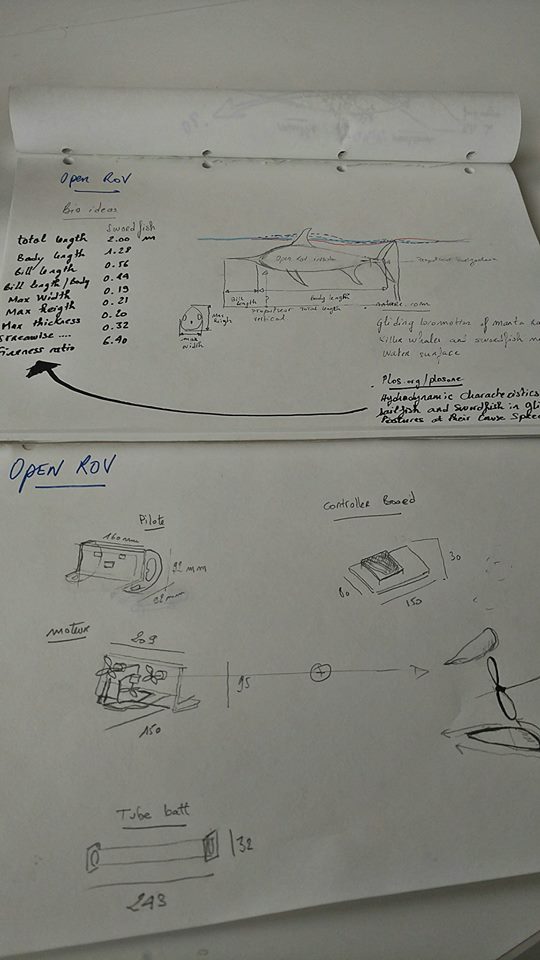 OPEN ROV
Bio ideas
Swordfish
total length 2.00 m
Body length 1.28
Bill length 0.56
Bill length/Body 0.44
Max Width 0.19
Max heigth 0.21
Max thickness 0.20
Streamwise .... 0.32
Fineness ratio 6.40
Open Rov
Bill length
Body length
Propulseur vertical
Total length
Max heigh
max Width
Gliding locomotion of manta
killer whales and swordfish
water surface
. Plos.org/plosone
Hydrodynamic Characteristics
Sailfish and Swordfish in
Postures at their
OPEN ROV
Pilote
160 mm
92 mm
Controller Board
30
80
150
Moteur
209
95
150
Tube batt
32
243